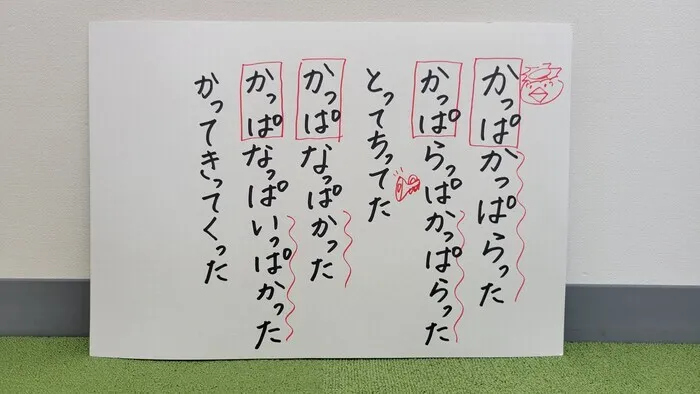 かっぱかっぱらった
かっぱらっぱかっぱらった
とってちってた
かっぱなっぱかった
かっぱなっぱいっぱかった
かってきってくった